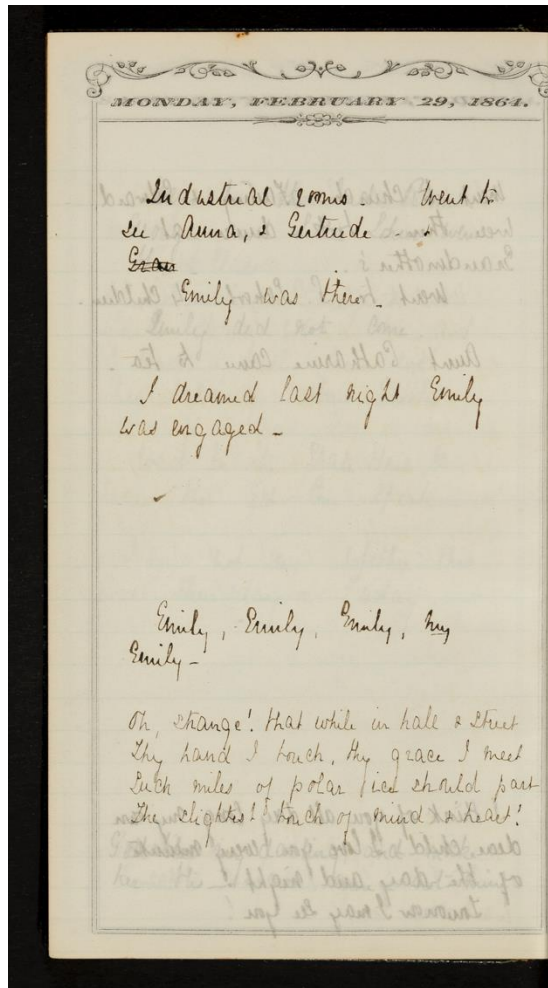 MONDAY, FEBRUARY 29, 1864.
Industrial rooms. Went to
see Anna, & Gertrude - -
Gran
Emily was there.
I dreamed last night Emily
was engaged -
Emily, Emily, Emily, my
Emily -
Oh, strange! that while in hall & street
Thy hand I touch, thy grace I meet
Such miles of polar ice should part
The slightest touch of mind & heart!